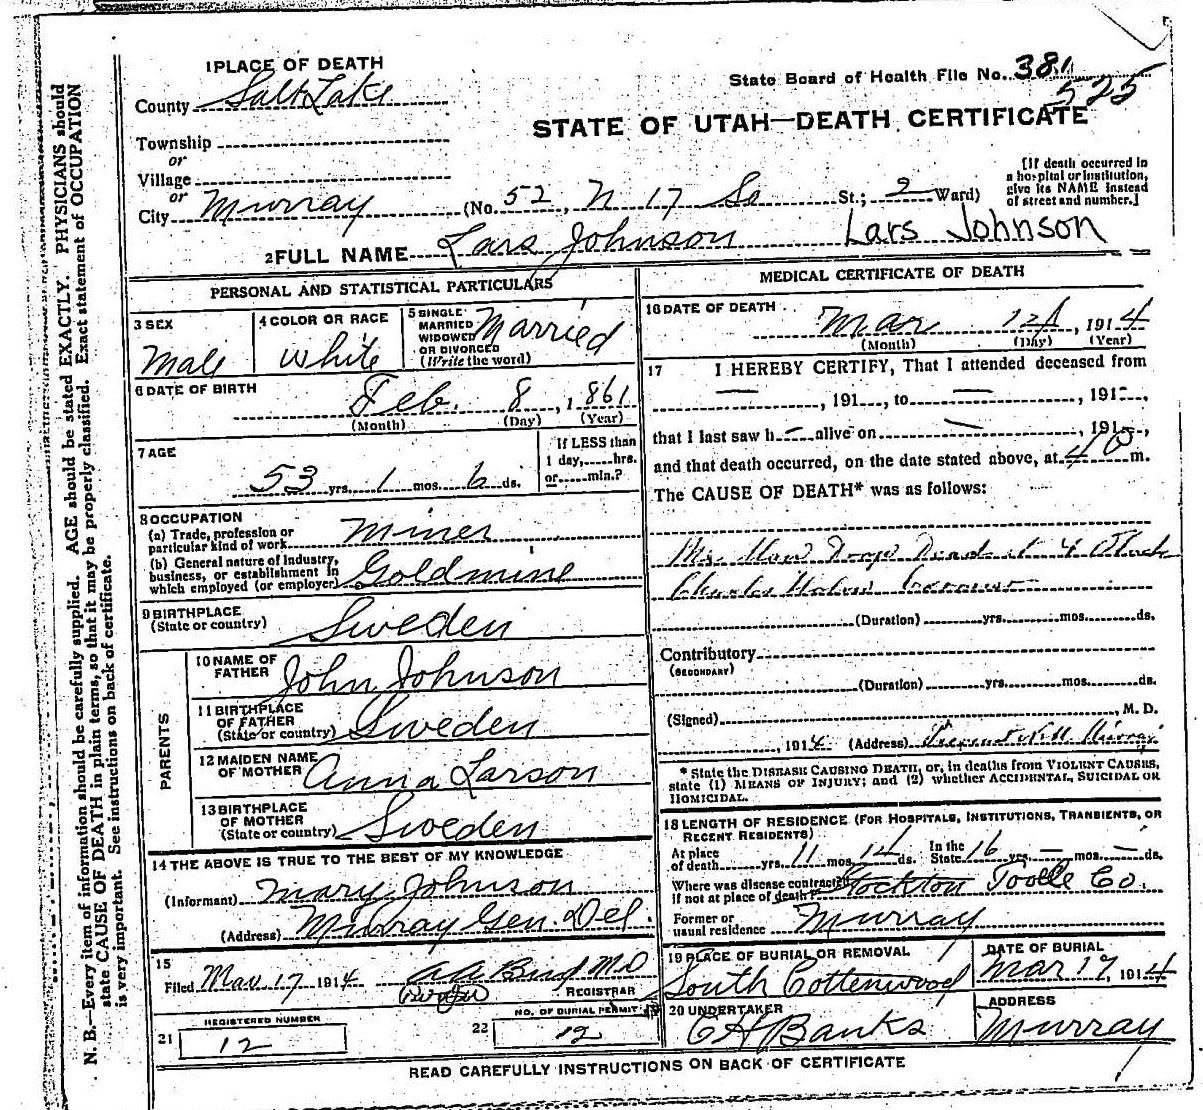 1 PLACE OF DEATH
County Salt Lake
Township
or
Village
or
City Murray (No. 52, N 17 So St.; 2 Ward)
State Board of Health File No. 381
525
STATE OF UTAH—DEATH CERTIFICATE
[If death occurred in
a hospital or institution,
give its NAME instead
of street and number.]
2 FULL NAME Lars Johnson Lars Johnson
PERSONAL AND STATISTICAL PARTICULARS
3 SEX
Male
4 COLOR OR RACE
White
5 SINGLE
MARRIED
WIDOWED
OR DIVORCED
(Write the word)
Married
6 DATE OF BIRTH
Feb. 8, 1861
(Month) (Day) (Year)
7 AGE
53 yrs. 1 mos. 6 ds.
If LESS than
1 day, hrs.
or min.?
8 OCCUPATION
(a) Trade, profession or
particular kind of work Miner
(b) General nature of Industry,
business, or establishment in
which employed (or employer) Goldmine
9 BIRTHPLACE
(State or country) Sweden
PARENTS
10 NAME OF
FATHER John Johnson
11 BIRTHPLACE
OF FATHER
(State or country) Sweden
12 MAIDEN NAME
OF MOTHER Anna Larson
13 BIRTHPLACE
OF MOTHER
(State or country) Sweden
14 THE ABOVE IS TRUE TO THE BEST OF MY KNOWLEDGE
(Informant) Mary Johnson
(Address) Murray Gen. Del.
15
Filed Mar 17 1914 MD
REGISTRAR
REGISTERED NUMBER
21 12
NO. OF BURIAL PERMIT
22 12
MEDICAL CERTIFICATE OF DEATH
16 DATE OF DEATH
Mar 1914
(Month) (Day) (Year)
17 I HEREBY CERTIFY, That I attended deceased from
—, 191, to —, 191—,
that I last saw h— alive on —, 191—,
and that death occurred, on the date stated above, at 4 m.
The CAUSE OF DEATH* was as follows:
Dead at 4
Charles
(Duration) yrs. mos. ds.
Contributory
(SECONDARY)
(Duration) yrs. mos. ds.
(Signed) , M. D.
, 1914 (Address) Murray
* State the DISEASE CAUSING DEATH, or, in deaths from VIOLENT CAUSES,
state (1) MEANS OF INJURY; and (2) whether ACCIDENTAL, SUICIDAL OR
HOMICIDAL.
18 LENGTH OF RESIDENCE (FOR HOSPITALS, INSTITUTIONS, TRANSIENTS, OR
RECENT RESIDENTS)
At place
of death yrs. 11 mos. 14 ds. In the
State 16 yrs. — mos. — ds.
Where was disease contracted
If not at place of death? Stockton Tooele Co.
Former or
usual residence Murray
19 PLACE OF BURIAL OR REMOVAL
South Cottonwood
DATE OF BURIAL
Mar 17, 1914
20 UNDERTAKER
Banks
ADDRESS
Murray
READ CAREFULLY INSTRUCTIONS ON BACK OF CERTIFICATE
N. B.—Every item of information should be carefully supplied. AGE should be stated EXACTLY. PHYSICIANS should
state CAUSE OF DEATH in plain terms, so that it may be properly classified. Exact statement of OCCUPATION
is very important. See instructions on back of certificate.